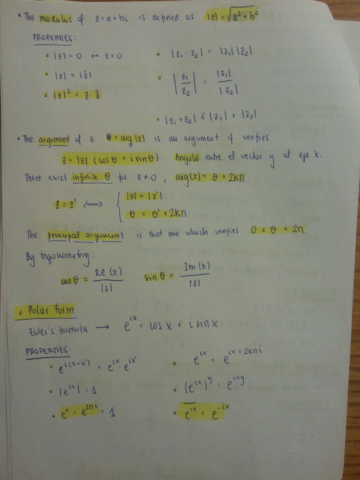 • The modulus of z=a+bi is defined as |z|=√a²+b²
PROPERTIES:
• |z|=0 ⇔ z=0
• |z₁·z₂| = |z₁||z₂|
• |z|=|z̄|
• |z₁/z₂| = |z₁|/|z₂|
• |z|² = z·z̄
• |z₁+z₂| ≤ |z₁|+|z₂|
• The argument of z θ=arg(z) is an argument if verifies
z=|z|(cosθ+i sinθ) Angulo entre el vector y el eje x.
There exist infinite θ for z≠0, arg(z)=θ+2kπ
z=z' ⟺ { |z|=|z'|
θ=θ'+2kπ
The principal argument is that one which verifies 0≤θ<2π.
By trigonometry:
cosθ = Re(z)/|z| sinθ = Im(z)/|z|
• Polar form
Euler's formula → e^{ix} = cos x + i sin x
PROPERTIES:
• e^{i(x+x')} = e^{ix} e^{ix'}
• e^{ix} = e^{ix+2kπi}
• |e^{ix}|=1
• (e^{ix})^y = e^{ixy}
• e^{0} = e^{2πi} = 1
• \overline{e^{ix}} = e^{-ix}